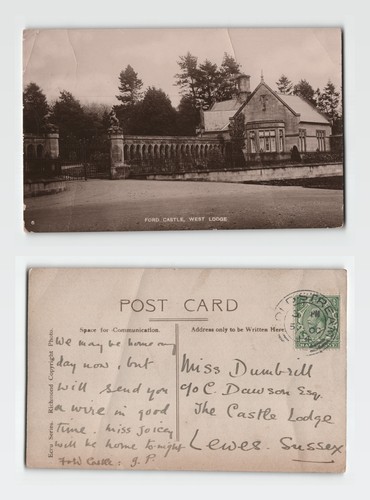 6
FORD CASTLE, WEST LODGE.
POST CARD
Space for Communication.
Address only to be Written Here.
Ecro Series. Richmond Copyright Photo.
We may be home any
day now, but
will send you
a wire in good
time. Miss Joicey
will be home to-night
Ford Castle: J.P.
Miss Dumbrill
c/o C. Dawson Esq.
The Castle Lodge
Lewes. Sussex
COLDSTREAM